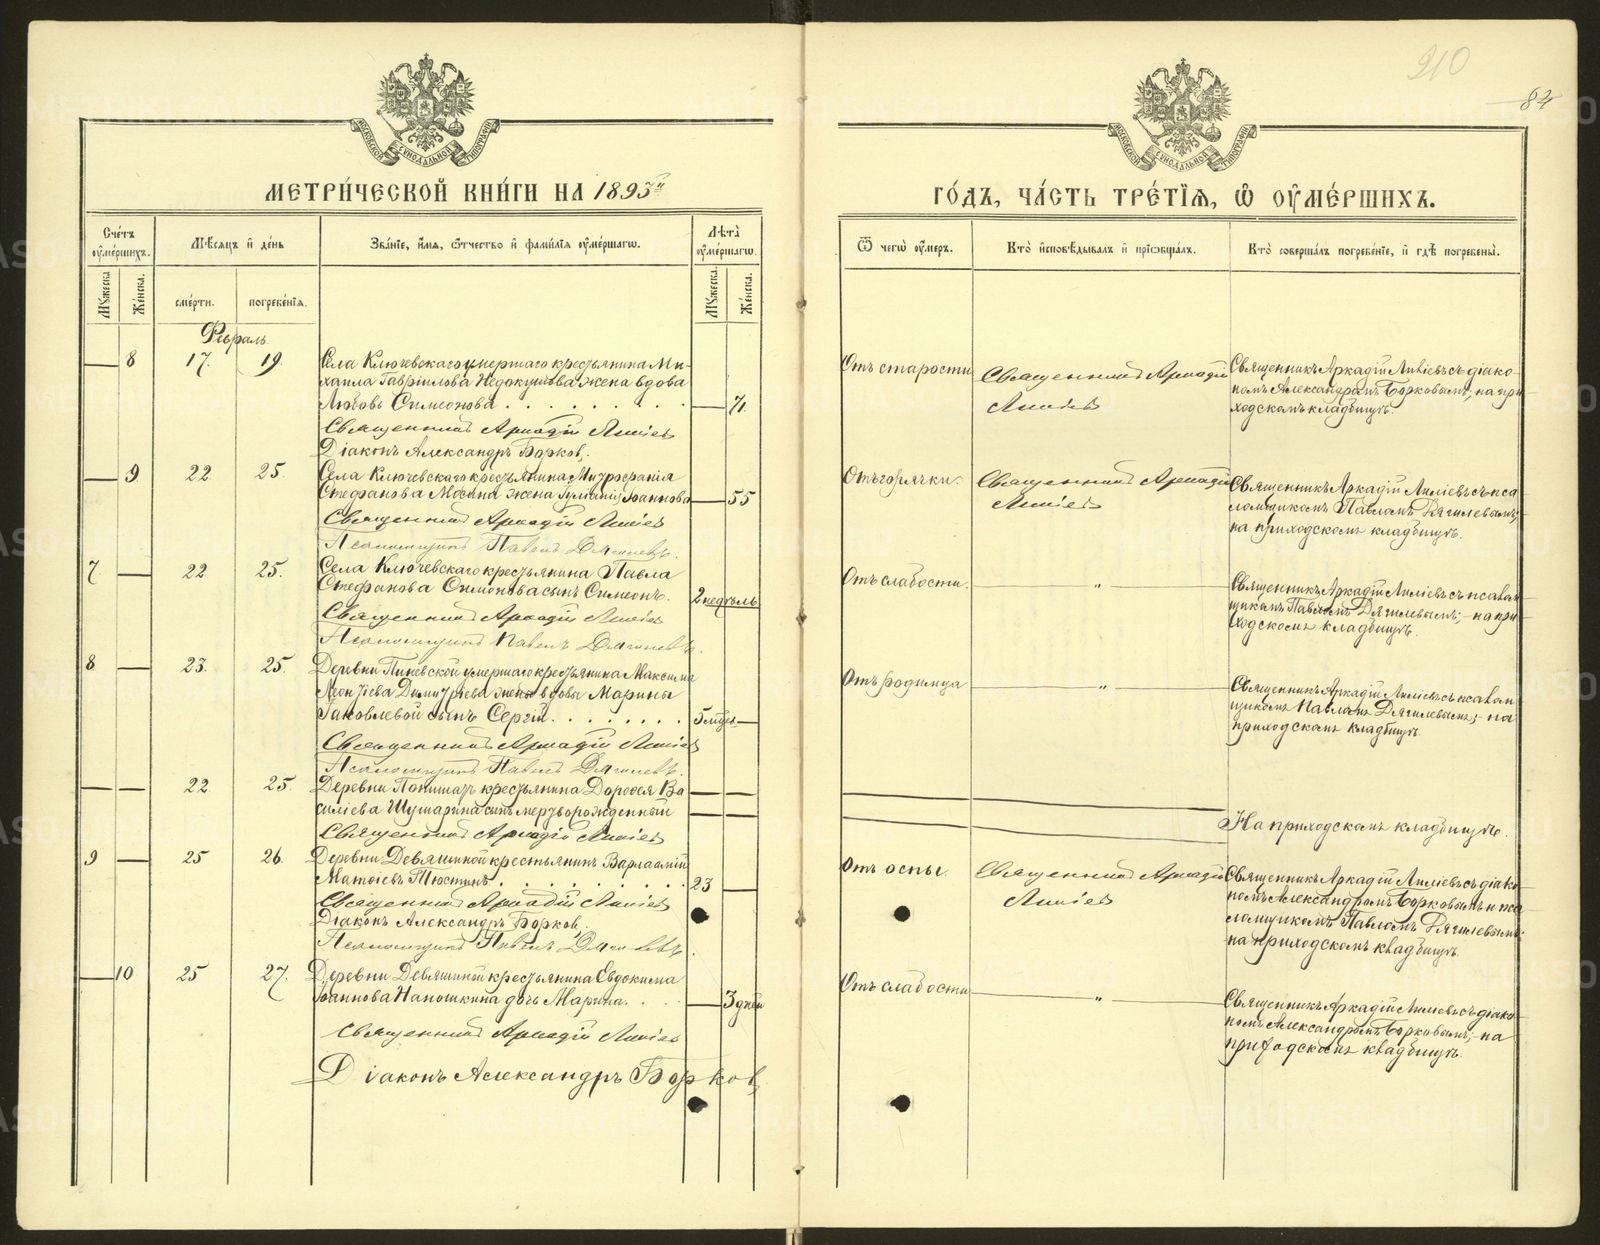 210
82
МОСКОВСКОЙ СѴНОДАЛЬНОЙ ТИПОГРАФІИ
МОСКОВСКОЙ СѴНОДАЛЬНОЙ ТИПОГРАФІИ
МЕТРИ́ЧЕСКОЙ КНИ́ГИ НА 1893й
ГО́ДЪ, ЧА́СТЬ ТРЕ́ТЇѦ, Ѡ҆ ОУ҆МЕ́РШИХЪ.
Сче́тъ оу҆ме́ршихъ.
Мꙋ́жеска
Же́нска.
Мѣ́сѧцъ и҆ де́нь
сме́рти.
погребе́нїѧ.
Зва́нїе, и҆́мѧ, ѻ҆́тчество и҆ фами́лїѧ оу҆ме́ршагѡ.
Лѣ́та оу҆ме́ршагѡ.
Мꙋ́жеска.
Же́нска.
Ѿ чегѡ̀ оу҆́меръ.
Кто̀ и҆сповѣ́дывалъ и҆ прїѡбща́лъ.
Кто̀ соверша́лъ погребе́нїе, и҆ гдѣ̀ погребены̀.
Февраль
8 17. 19.
Села Ключевскаго умершаго крестьянина Ми-
хаила Гавріилова Недокушова жена вдова
Любовь Симеонова
71.
Священникъ Аркадій Лиліевъ
Діаконъ Александръ Борковъ.
Отъ старости
Священникъ Аркадій
Лиліевъ
Священникъ Аркадій Лиліевъ съ діако-
номъ Александромъ Борковымъ, на при
ходскомъ кладбищѣ.
9 22. 25.
Села Ключевскаго крестьянина Митрофанія
Стефанова Мосина жена Іоаннова
55
Священникъ Аркадій Лиліевъ
Псаломщикъ Павелъ Дягилевъ.
Отъ горячки.
Священникъ Аркадій
Лиліевъ
Священникъ Аркадій Лиліевъ съ пса
ломщикомъ Павломъ Дягилевымъ;
на приходскомъ кладбищѣ.
7 22. 25.
Села Ключевскаго крестьянина Павла
Стефанова Симонова сынъ Симеонъ.
2 недѣль
Священникъ Аркадій Лиліевъ
Псаломщикъ Павелъ Дягилевъ.
Отъ слабости. „
Священникъ Аркадій Лиліевъ съ псалом
щикомъ Павломъ Дягилевымъ; на при
ходскомъ кладбищѣ.
8 23. 25.
Деревни умершаго крестьянина Максима
Леонтіева Димитріева жены вдовы Марины
Іаковлевой сынъ Сергій.
5 мцев
Священникъ Аркадій Лиліевъ
Псаломщикъ Павелъ Дягилевъ.
Отъ родимца „
Священникъ Аркадій Лиліевъ съ псалом
щикомъ Павломъ Дягилевымъ; на
приходскомъ кладбищѣ.
22. 25.
Деревни крестьянина Дорофея Ва
силіева Шушарина сынъ мертворожденный
Священникъ Аркадій Лиліевъ
На приходскомъ кладбищѣ.
9 25 26.
Деревни Девяшиной крестьянинъ Варлаамій
Матѳіевъ Тюстинъ
23
Священникъ Аркадій Лиліевъ
Діаконъ Александръ Борковъ,
Псаломщикъ Павелъ Дягилевъ.
Отъ оспы.
Священникъ Аркадій
Лиліевъ
Священникъ Аркадій Лиліевъ съ діако
номъ Александромъ Борковымъ и пса
ломщикомъ Павломъ Дягилевымъ;
на приходскомъ кладбищѣ.
10 25 27.
Деревни Девяшиной крестьянина Евдокима
Іоаннова Напошкина дочь Марина.
3 дней
Священникъ Аркадій Лиліевъ
Діаконъ Александръ Борковъ,
Отъ слабости „
Священникъ Аркадій Лиліевъ съ діако
номъ Александромъ Борковымъ; на
приходскомъ кладбищѣ.